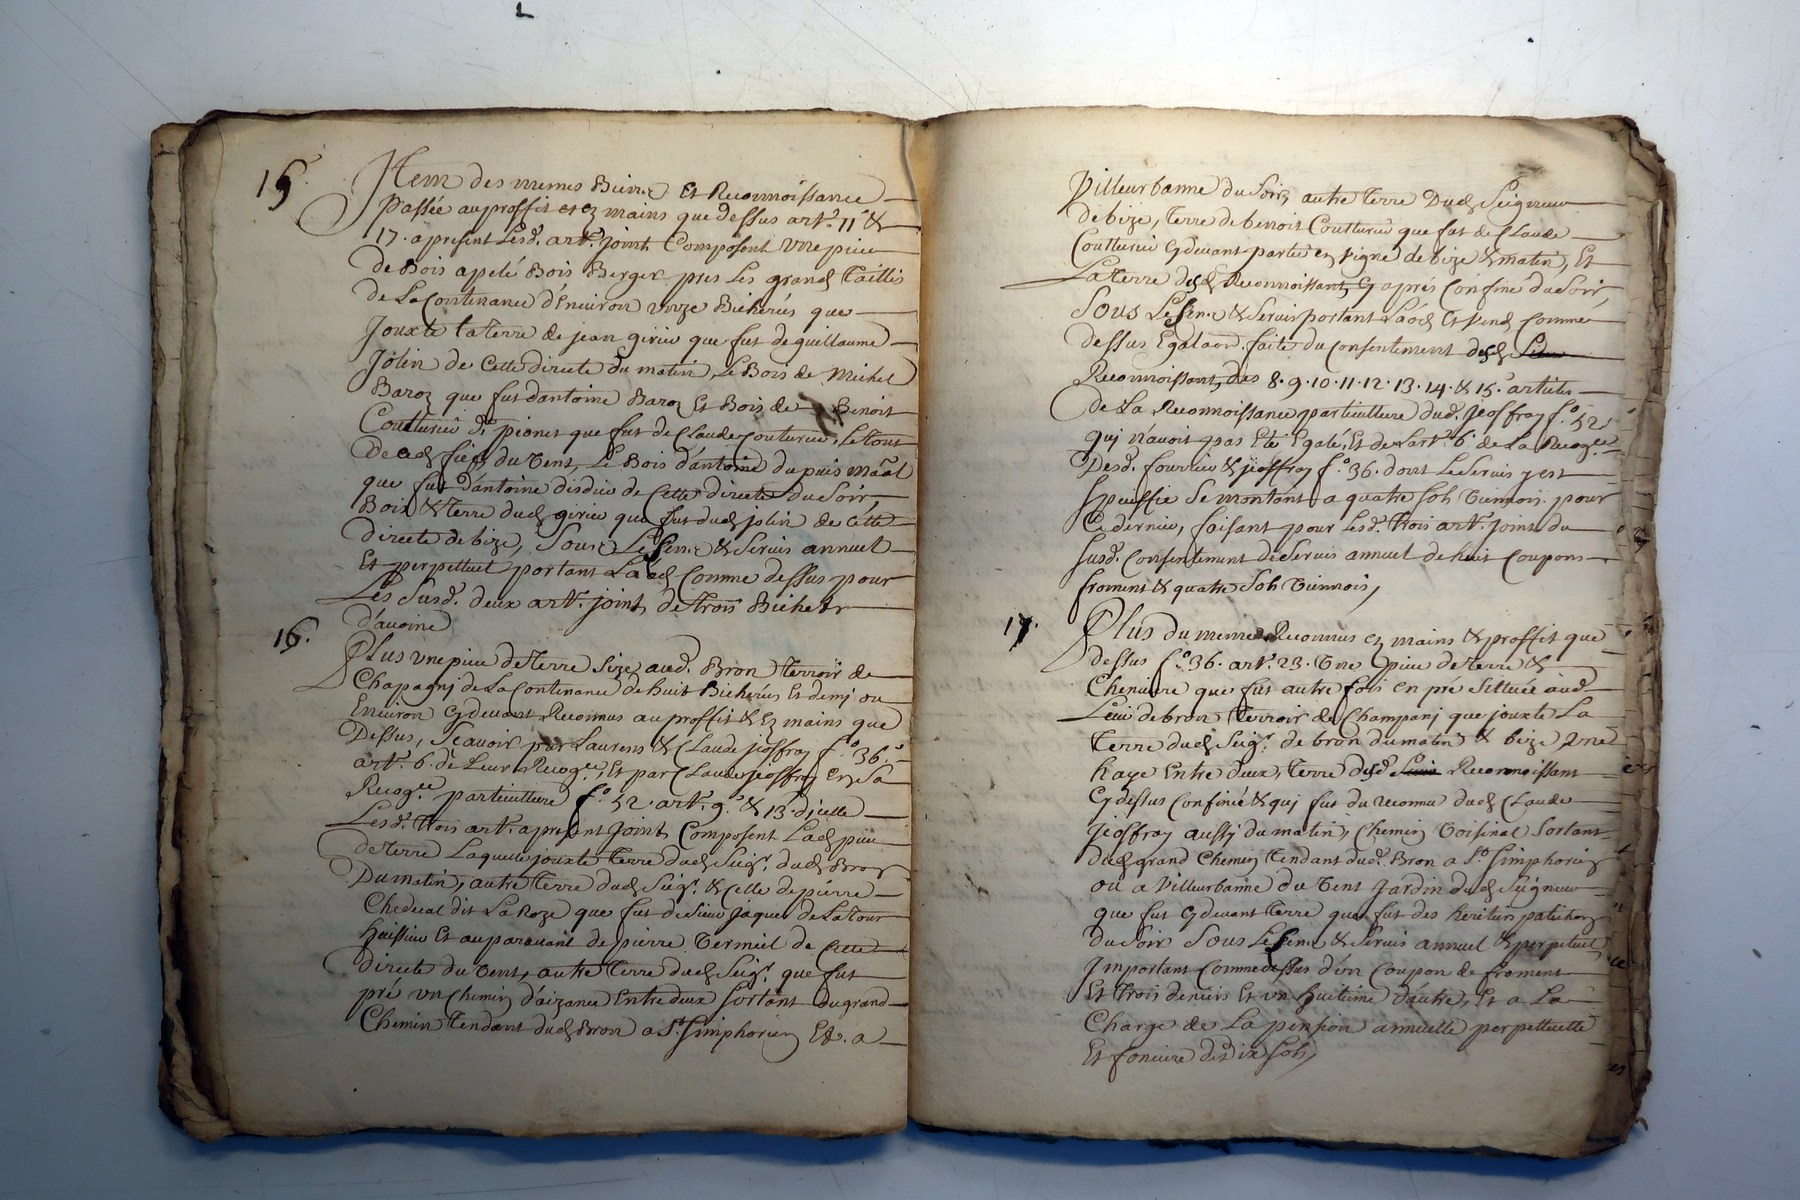 15. Item des memes Biens Et Reconnoissance
Passée au proffit et ez mains que dessus art.e 11e &
17. apresent Lesd. art.s joint Composent vne piece
de Bois apelé Bois Berger pres Les grands Taillis
de La Contenance d'Enuiron vnze Bicherées que
Jouxte la Terre de jean girieu que fut de guillaume
Jolin de Cette directe du matin, Le Bois de Michel
Baroz que fut dantoine Baroz Et Bois de Benoit
Coutturier d.t pionet que fut de Claude Couturier, Le Tout
de fief du Vent, Le Bois d'antoine dupuis maal
que fut d'antoine disdier de Cette directe du Soir,
Bois & Terre dud girieu que fut dud jolin de Cette
directe de bize, Sous Le Cens & Seruis annuel
Et perpettuel portant Laod Comme dessus pour
Les Susd. deux art.s joint de trois Bichets
d'auoine
16. Plus vne pieu de Terre Size aud. Bron Terroir de
Chapagnj de La Contenance de huit Bicherées Et demj ou
Enuiron Cydeuant Reconnus au proffit & Ez mains que
Dessus, Scauoir par Laurens & Claude jeoffray f.o 36.
art.e 6. de Leur Recog.ce, Et par Claude jeoffray En Sa
Recog.ce particulliere f.o 52. art.e 9.e & 13. d'jcelle
Lesd. Trois art.s apresent joint Composent Lad pieu
de Terre Laquelle jouxte Terre dud Seig.r dud Bron
Du matin, autre Terre dud Seig.r & Celle de pierre
Cheual dit La Roze que fut de Sieur jaques de La Tour
huissier Et auparauant de pierre Vermiel de Cette
directe du Vent, autre Terre dud Seig.r que fut
pré vn Chemin d'aizance Entre deux Sortant du grand
Chemin Tendant dud Bron a S.t Simphorien Et. a
Villeurbanne du Soir, autre Terre Dud Seigneur
de bize, Terre de benoit Coutturier que fut de Claude
Coutturier Cydeuant partie en vigne de bize & matin, Et
La Terre desd Reconnoissant Cy aprés Confinée du Soir,
Sous Le Cens & Seruis portant Laod Et Vend Comme
dessus Egalaon. faite du Consentement desd
Reconnoissant, des 8. 9. 10. 11. 12. 13. 14. & 15.e articles
de La Reconnoissance particulliere dud. jeoffray f.o 52
quj n'auoit pas Eté Egalé, Et de L'art.e 6.e de La Recog.ce
Desd. fourrier & jeoffray f.o 36. dont Le Seruis y est
Speciffié Se montant a quatre Sols Viennois. pour
Ce dernier, faisant pour Lesd. Trois art.s joint du
Susd. Consentement de Seruis annuel de huit Coupons
froment & quatre Sols Viennois,
17. Plus du meme Reconnus ez mains & proffit que
dessus f.o 36. art.e 23. Vne pieu de Terre &
Cheniere que fut autre fois en pré Sittuée aud
Lieu de bron Terroir de Champanj que jouxte La
Terre dud Seig.r de bron du matin & bize vne
haye Entre deux, Terre desd. Reconnoissant
Cy dessus Confinée & quj fut du reconnu dud Claude
Jeoffray aussy du matin, Chemin Voisinal Sortant
dud grand Chemin Tendant dud. Bron a S.t Simphorien
ou a Villeurbanne du Vent Jardin dud Seigneur
que fut Cydeuant Terre que fut des heritiers
du Soir Sous Le Cens & Seruis annuel & perpetuel
Jmportant Comme dessus d'vn Coupon de froment
Et Trois deniers Et vn huitieme d'autre, Et a La
Charge de La pension annuelle perpettuelle
Et fonciere de dix Sols,